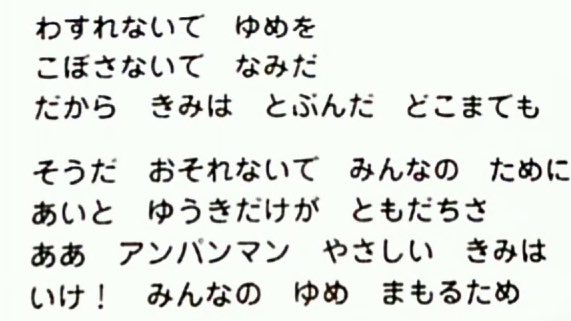 わすれないで ゆめを
こぼさないで なみだ
だから きみは とぶんだ どこまでも
そうだ おそれないで みんなの ために
あいと ゆうきだけが ともだちさ
ああ アンパンマン やさしい きみは
いけ! みんなの ゆめ まもるため